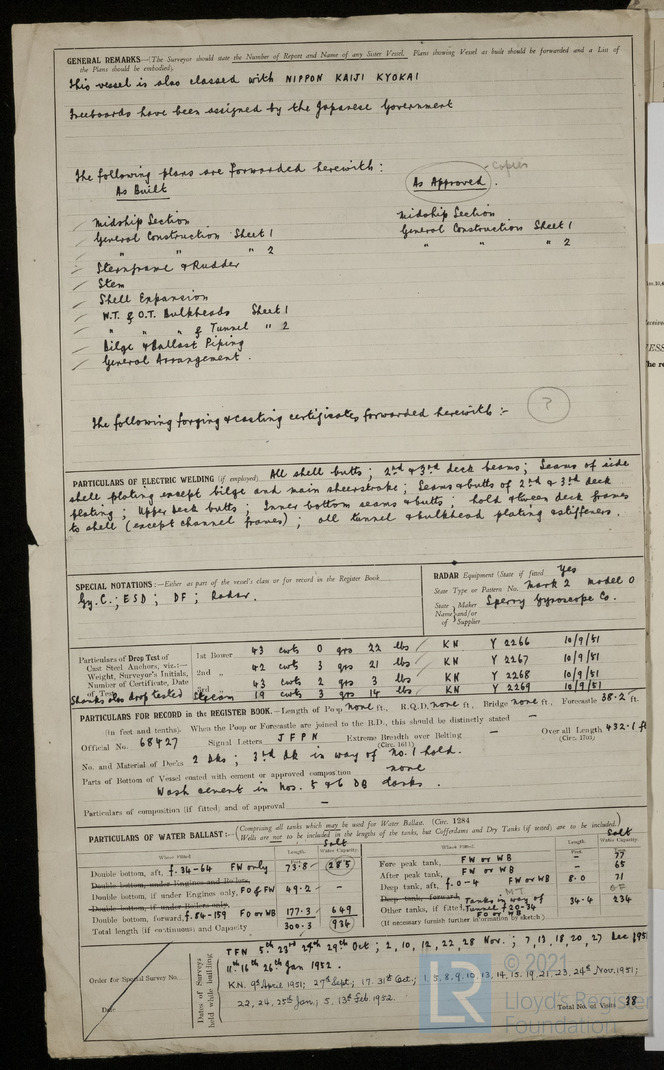 GENERAL REMARKS—(The Surveyor should state the Number of Report and Name of any Sister Vessel. Plans showing Vessel as built should be forwarded and a List of
the Plans should be embodied).
This vessel is also classed with NIPPON KAIJI KYOKAI
Freeboards have been assigned by the Japanese Government
The following plans are forwarded herewith:
As Built
As Approved. copies
Midship Section
General Construction Sheet 1
" " " 2
Sternframe & Rudder
Stem
Shell Expansion
W.T. & O.T. Bulkheads Sheet 1
" " " & Tunnel " 2
Bilge & Ballast Piping
General Arrangement.
Midship Section
General Construction Sheet 1
" " " 2
The following forging & casting certificates forwarded herewith :- ?
PARTICULARS OF ELECTRIC WELDING (if employed) All shell butts ; 2nd & 3rd deck beams ; Seams of side
shell plating except bilge and main sheerstrake ; Seams & butts of 2nd & 3rd deck
plating ; Upper deck butts ; Inner bottom seams & butts ; hold & tween deck frames
to shell (except channel frames) ; all tunnel & bulkhead plating & stiffeners.
SPECIAL NOTATIONS:—Either as part of the vessel's class or for record in the Register Book
Gy.C. ; ESD ; DF ; Radar.
RADAR Equipment (State if fitted) Yes
State Type or Pattern No. Mark 2 Model 0
State Name and/or of Maker Supplier Sperry Gyroscope Co.
Particulars of Drop Test of
Cast Steel Anchors, viz.:—
Weight, Surveyor's Initials,
Number of Certificate, Date
of Test
Shanks also drop tested
1st Bower 43 cwts 0 qrs 22 lbs KN Y 2266 10/9/51
2nd " 42 cwts 3 qrs 21 lbs KN Y 2267 10/9/51
3rd " 43 cwts 2 qrs 3 lbs KN Y 2268 10/9/51
Stream 19 cwts 3 qrs 14 lbs KN Y 2269 10/9/51
PARTICULARS FOR RECORD in the REGISTER BOOK.—Length of Poop none ft., R.Q.D. none ft., Bridge none ft., Forecastle 38.2 ft.
(in feet and tenths). When the Poop or Forecastle are joined to the B.D., this should be distinctly stated —
Official No. 68427 Signal Letters JFPN Extreme Breadth over Belting (Circ. 1611) — Over all Length 432.1 ft (Circ. 1703)
No. and Material of Decks 2 Dks ; 3rd dk in way of No. 1 hold.
Parts of Bottom of Vessel coated with cement or approved composition none
Wash cement in Nos. 5 & 6 DB tanks.
Particulars of composition (if fitted) and of approval —
PARTICULARS OF WATER BALLAST:—(Comprising all tanks which may be used for Water Ballast. (Circ. 1284
Wells are not to be included in the lengths of the tanks, but Cofferdams and Dry Tanks (if tested) are to be included.)
Where Fitted. Length. Salt Water Capacity.
Double bottom, aft, f. 34-64 FW only 73.8 285
Double bottom, under Engines and Boilers,
Double bottom, if under Engines only, FO & FW 49.2 —
Double bottom, if under Boilers only,
Double bottom, forward, f. 84-159 FO or WB 177.3 649
Total length (if continuous) and Capacity 300.3 934
Where Fitted. Length. Feet. Salt Water Capacity.
Fore peak tank, FW or WB — 77
After peak tank, FW or WB — 65
Deep tank, aft, f. 0-4 FW or WB 8.0 71
Deep tank, forward, MT
Other tanks, if fitted, Tanks in way of Tunnel f 20-34 FO or WB 34.4 234
(If necessary furnish further information by sketch)
Order for Special Survey No.
Date
Dates of Surveys held while building
TFN 5th 23rd 24th 29th Oct ; 2, 10, 12, 22, 28 Nov. ; 7, 13, 18, 20, 27 Dec 1951
11th 16th 26th Jan 1952.
KN. 9th April 1951; 27th Sept; 17. 31st Oct.; 1, 5, 8, 9, 10, 13, 14, 15, 19, 21, 23, 24th Nov. 1951;
22, 24, 25th Jan; 5, 13th Feb. 1952.
Total No. of Visits 38
© 2021
LR
Lloyd's Register
Foundation